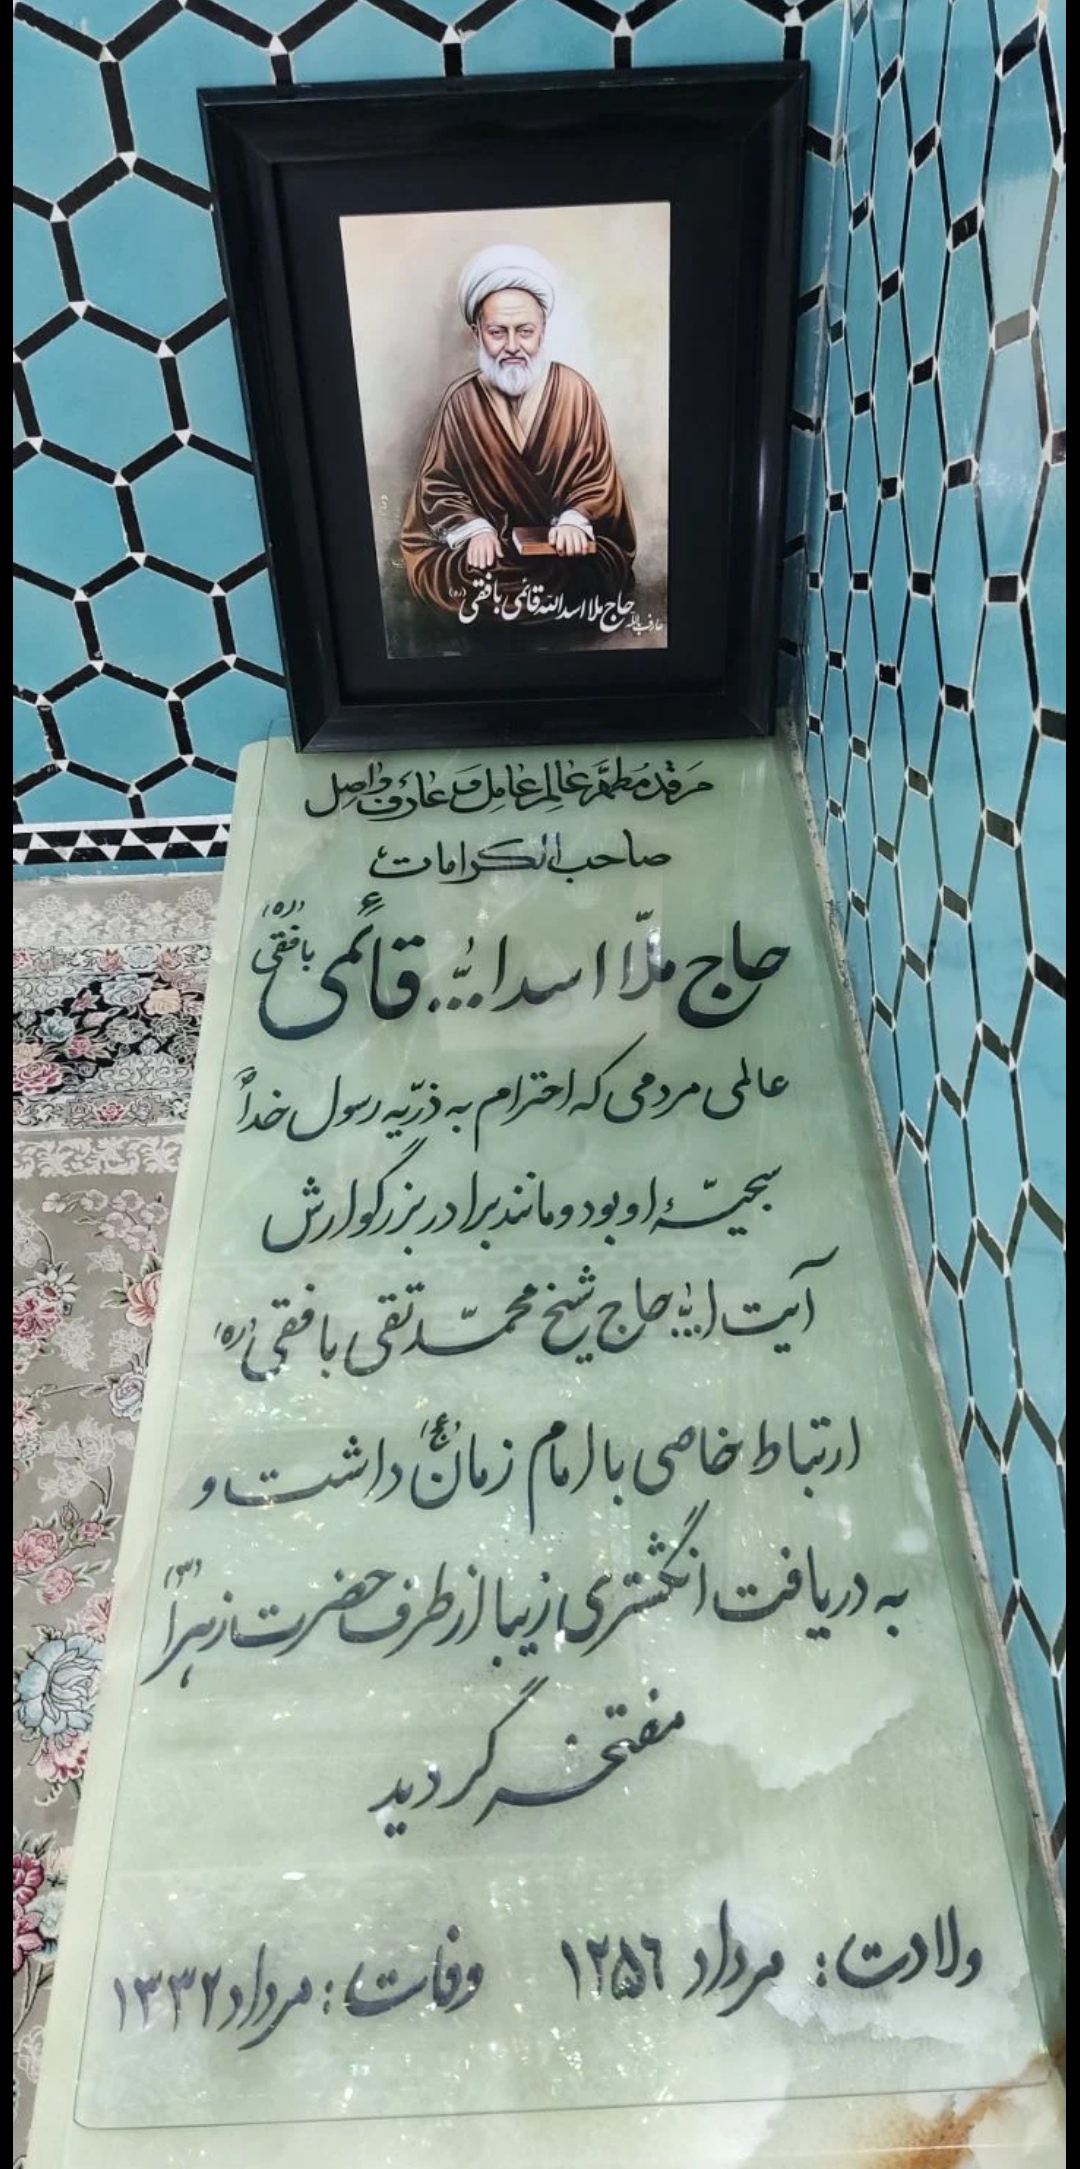 عارف بالله
حاج ملا اسدالله قائمی بافقی (ره)
مرقد مطهر عالم عامل و عارف واصل
صاحب الکرامات
حاج ملّا اسدالله قائمی بافقی (ره)
عالمی مردمی که احترام به ذرّیه رسول خدا
سجیّهٔ او بود و مانند برادر بزرگوارش
آیت الله حاج شیخ محمّد تقی بافقی (ره)
ارتباط خاصی با امام زمان (عج) داشت و
به دریافت انگشتری زیبا از طرف حضرت زهرا (س)
مفتخر گردید
ولادت: مرداد ۱۲۵۶ وفات: مرداد ۱۳۳۲